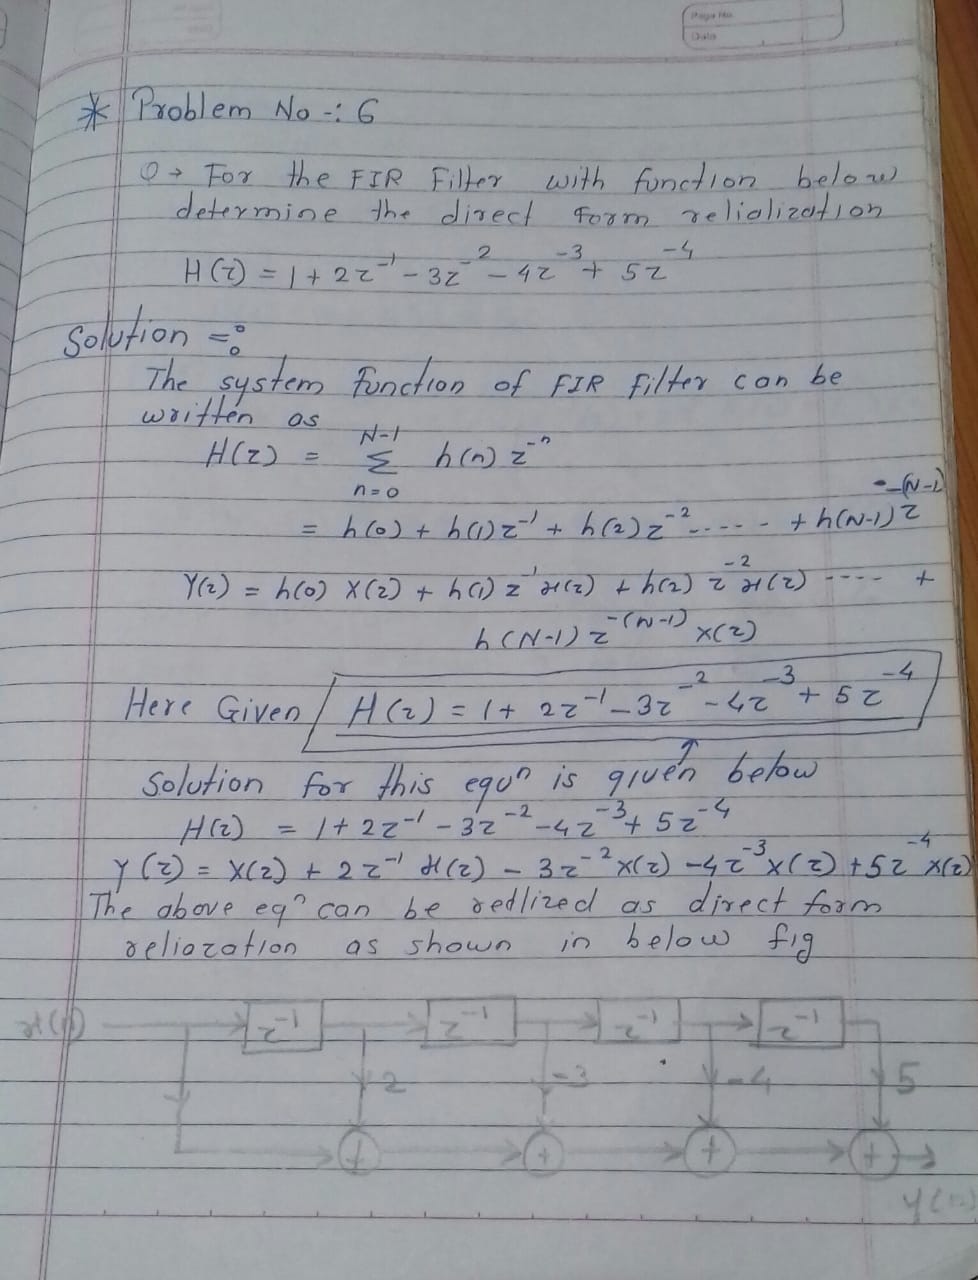 Page No.
Date
* Problem No -: 6
Q → For the FIR Filter with function below
determine the direct form relialization
H(z) = 1 + 2z⁻¹ - 3z⁻² - 4z⁻³ + 5z⁻⁴
Solution =:
The system function of FIR Filter can be
written as
H(z) = N-1 Σ n=0 h(n) z⁻ⁿ
= h(0) + h(1)z⁻¹ + h(2)z⁻² ----- + h(N-1)z⁻⁽ᴺ⁻¹⁾
Y(z) = h(0) X(z) + h(1) z⁻¹ x(z) + h(2) z⁻² x(z) ---- +
h(N-1) z⁻⁽ᴺ⁻¹⁾ x(z)
Here Given H(z) = 1 + 2z⁻¹ - 3z⁻² - 4z⁻³ + 5z⁻⁴
Solution for this equⁿ is given below
H(z) = 1 + 2z⁻¹ - 3z⁻² - 4z⁻³ + 5z⁻⁴
Y(z) = X(z) + 2z⁻¹ x(z) - 3z⁻² x(z) - 4z⁻³ x(z) + 5z⁻⁴ x(z)
The above eqⁿ can be redlized as direct form
reliazation as shown in below fig
x(n) z⁻¹ z⁻¹ z⁻¹ z⁻¹
2 -3 -4 5
+ + + +
y(n)